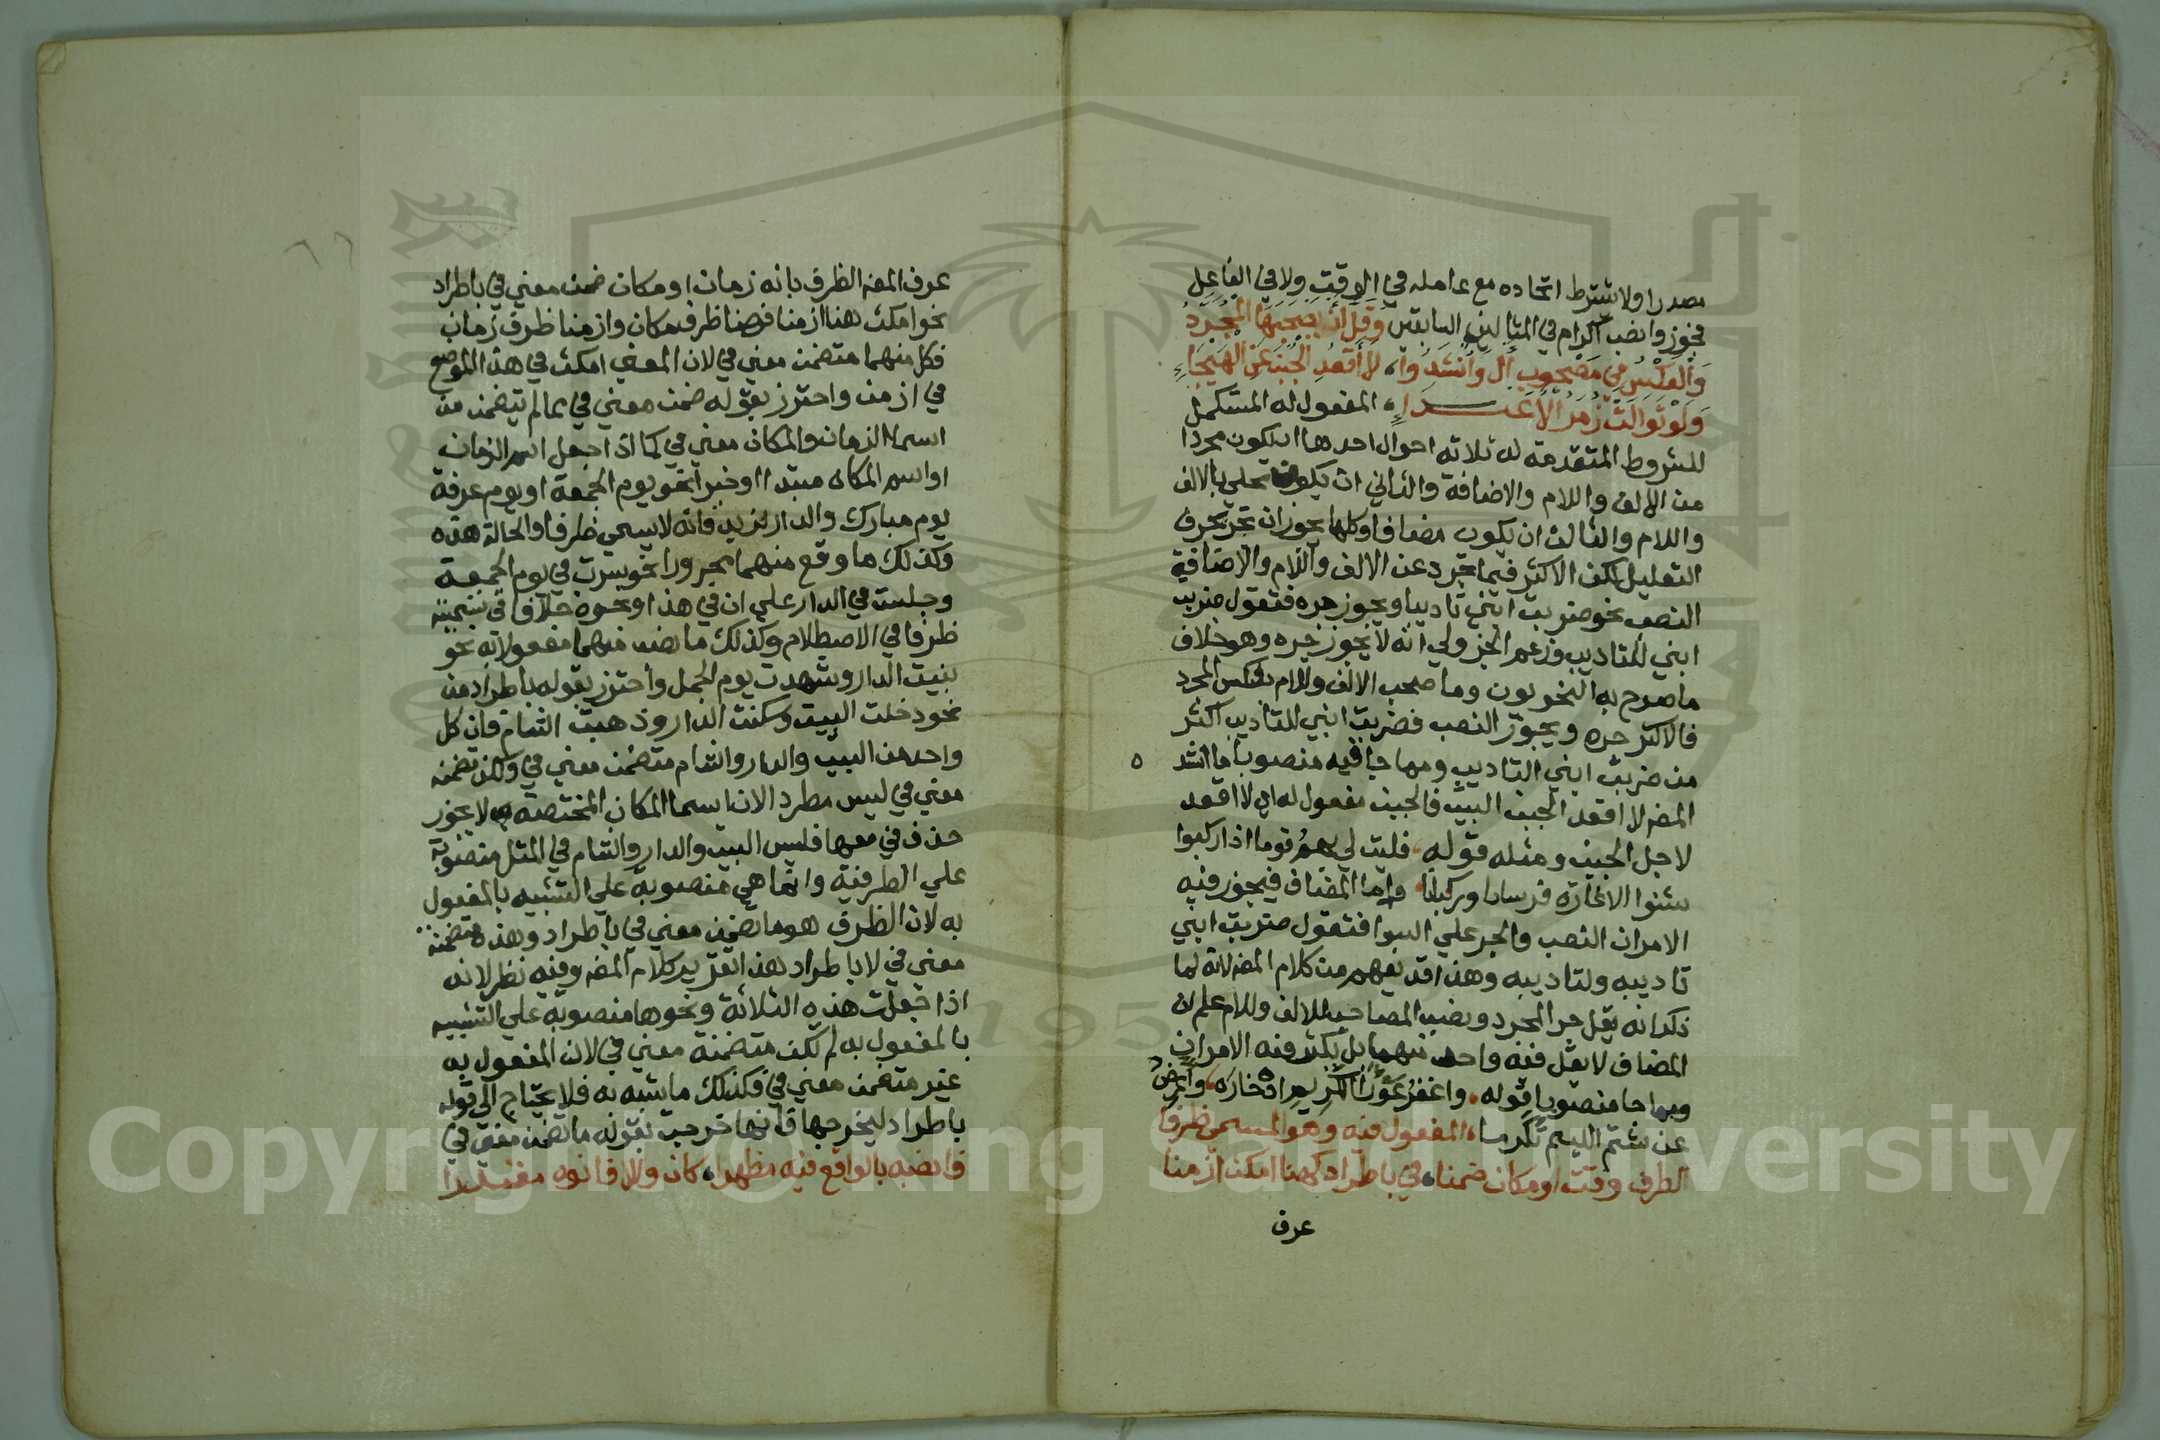 مصدرا ولا يشترط اتحاده مع عامله في الوقت ولا في الفاعل
فجوزوا نصب اكرام في المثالين السابقين وقل ان يصحبها المجرد
والعكس في مصحوب ال وانشدوا، لا أقعد الجبن عن الهيجاء
ولو توالت زمر الاعداء، المفعول له المستكمل
للشروط المتقدمة له ثلاثة احوال احدها ان يكون مجردا
من الالف واللام والاضافة والثاني ان يكون محلي بالالف
واللام والثالث ان يكون مضافا وكلها يجوز ان تجر بحرف
التعليل لكن الاكثر فيما تجرد عن الالف واللام والاضافة
النصب نحو ضربت ابني تاديبا ويجوز جره فتقول ضربت
ابني لتاديب وزعم الجزولي انه لا يجوز جره وهو خلاف
ما صرح به النحويون وما صحب الالف واللام بعكس المجرد
فالاكثر جره ويجوز النصب فضربت ابني للتاديب اكثر
من ضربت ابني التاديب ومما جا فيه منصوبا ما انشد
المصه لا اقعد الجبن البيت فالجبن مفعول له اي لا اقعد
لاجل الجبن ومثله قوله، فليت لي بهم قوما اذا ركبوا
شنوا الاغارة فرسانا وركبانا، واما المضاف فيجوز فيه
الامران النصب والجر علي السوا فتقول ضربت ابني
تاديبه ولتاديبه وهذا قد يفهم من كلام المصه لانه لما
ذكر انه يقل جر المجرد ونصب المصاحب للالف واللام علم ان
المضاف لا يقل فيه واحد منهما بل يكثر فيه الامران
ومما جا منصوبا قوله، واغفر عوراء الكريم ادخاره، واعرض
عن شتم اللئيم تكرما، المفعول فيه وهو المسمي ظرفا
الظرف وقت او مكان ضمنا، في باطراد كهنا امكث ازمنا
عرف
عرف المصه الظرف بانه زمان او مكان ضمن معني في باطراد
نحو امكث هنا ازمنا فهنا ظرف مكان وازمنا ظرف زمان
فكل منهما متضمن معني في لان المعني امكث في هذا الموضع
في ازمن واحترز بقوله ضمن معني في عما لم يتضمن من
اسما الزمان والمكان معني في كما اذا جعل اسم الزمان
او اسم المكان مبتدا او خبرا نحو يوم الجمعة او يوم عرفة
يوم مبارك والدار لزيد فانه لا يسمي ظرفا والحالة هذه
وكذلك ما وقع منهما مجرورا نحو سرت في يوم الجمعة
وجلست في الدار علي ان في هذا ونحوه خلافا في تسميته
ظرفا في الاصطلاح وكذلك ما نصب منهما مفعولا به نحو
بنيت الدار وشهدت يوم الجمل واحترز بقوله باطراد من
نحو دخلت البيت وسكنت الدار وذهبت الشام فان كل
واحد من البيت والدار والشام متضمن معني في ولكن تضمنه
معني في ليس مطردا لان اسما المكان المختصة لا يجوز
حذف في معها فليس البيت والدار والشام في المثل منصوبة
علي الظرفية وانما هي منصوبة علي التشبيه بالمفعول
به لان الظرف هو ما تضمن معني في باطراد وهذه متضمنة
معني في لا باطراد هذا تقرير كلام المصه وفيه نظر لانه
اذا جعلت هذه الثلاثة ونحوها منصوبة علي التشبيه
بالمفعول به لم تكن متضمنة معني في لان المفعول به
غير متضمن معني في فكذلك ما شبه به فلا يحتاج الي قوله
باطراد ليخرجها فانها خرجت بقوله ما تضمن معني في
فانصبه بالواقع فيه مظهرا، كان والا فانوه مقدرا